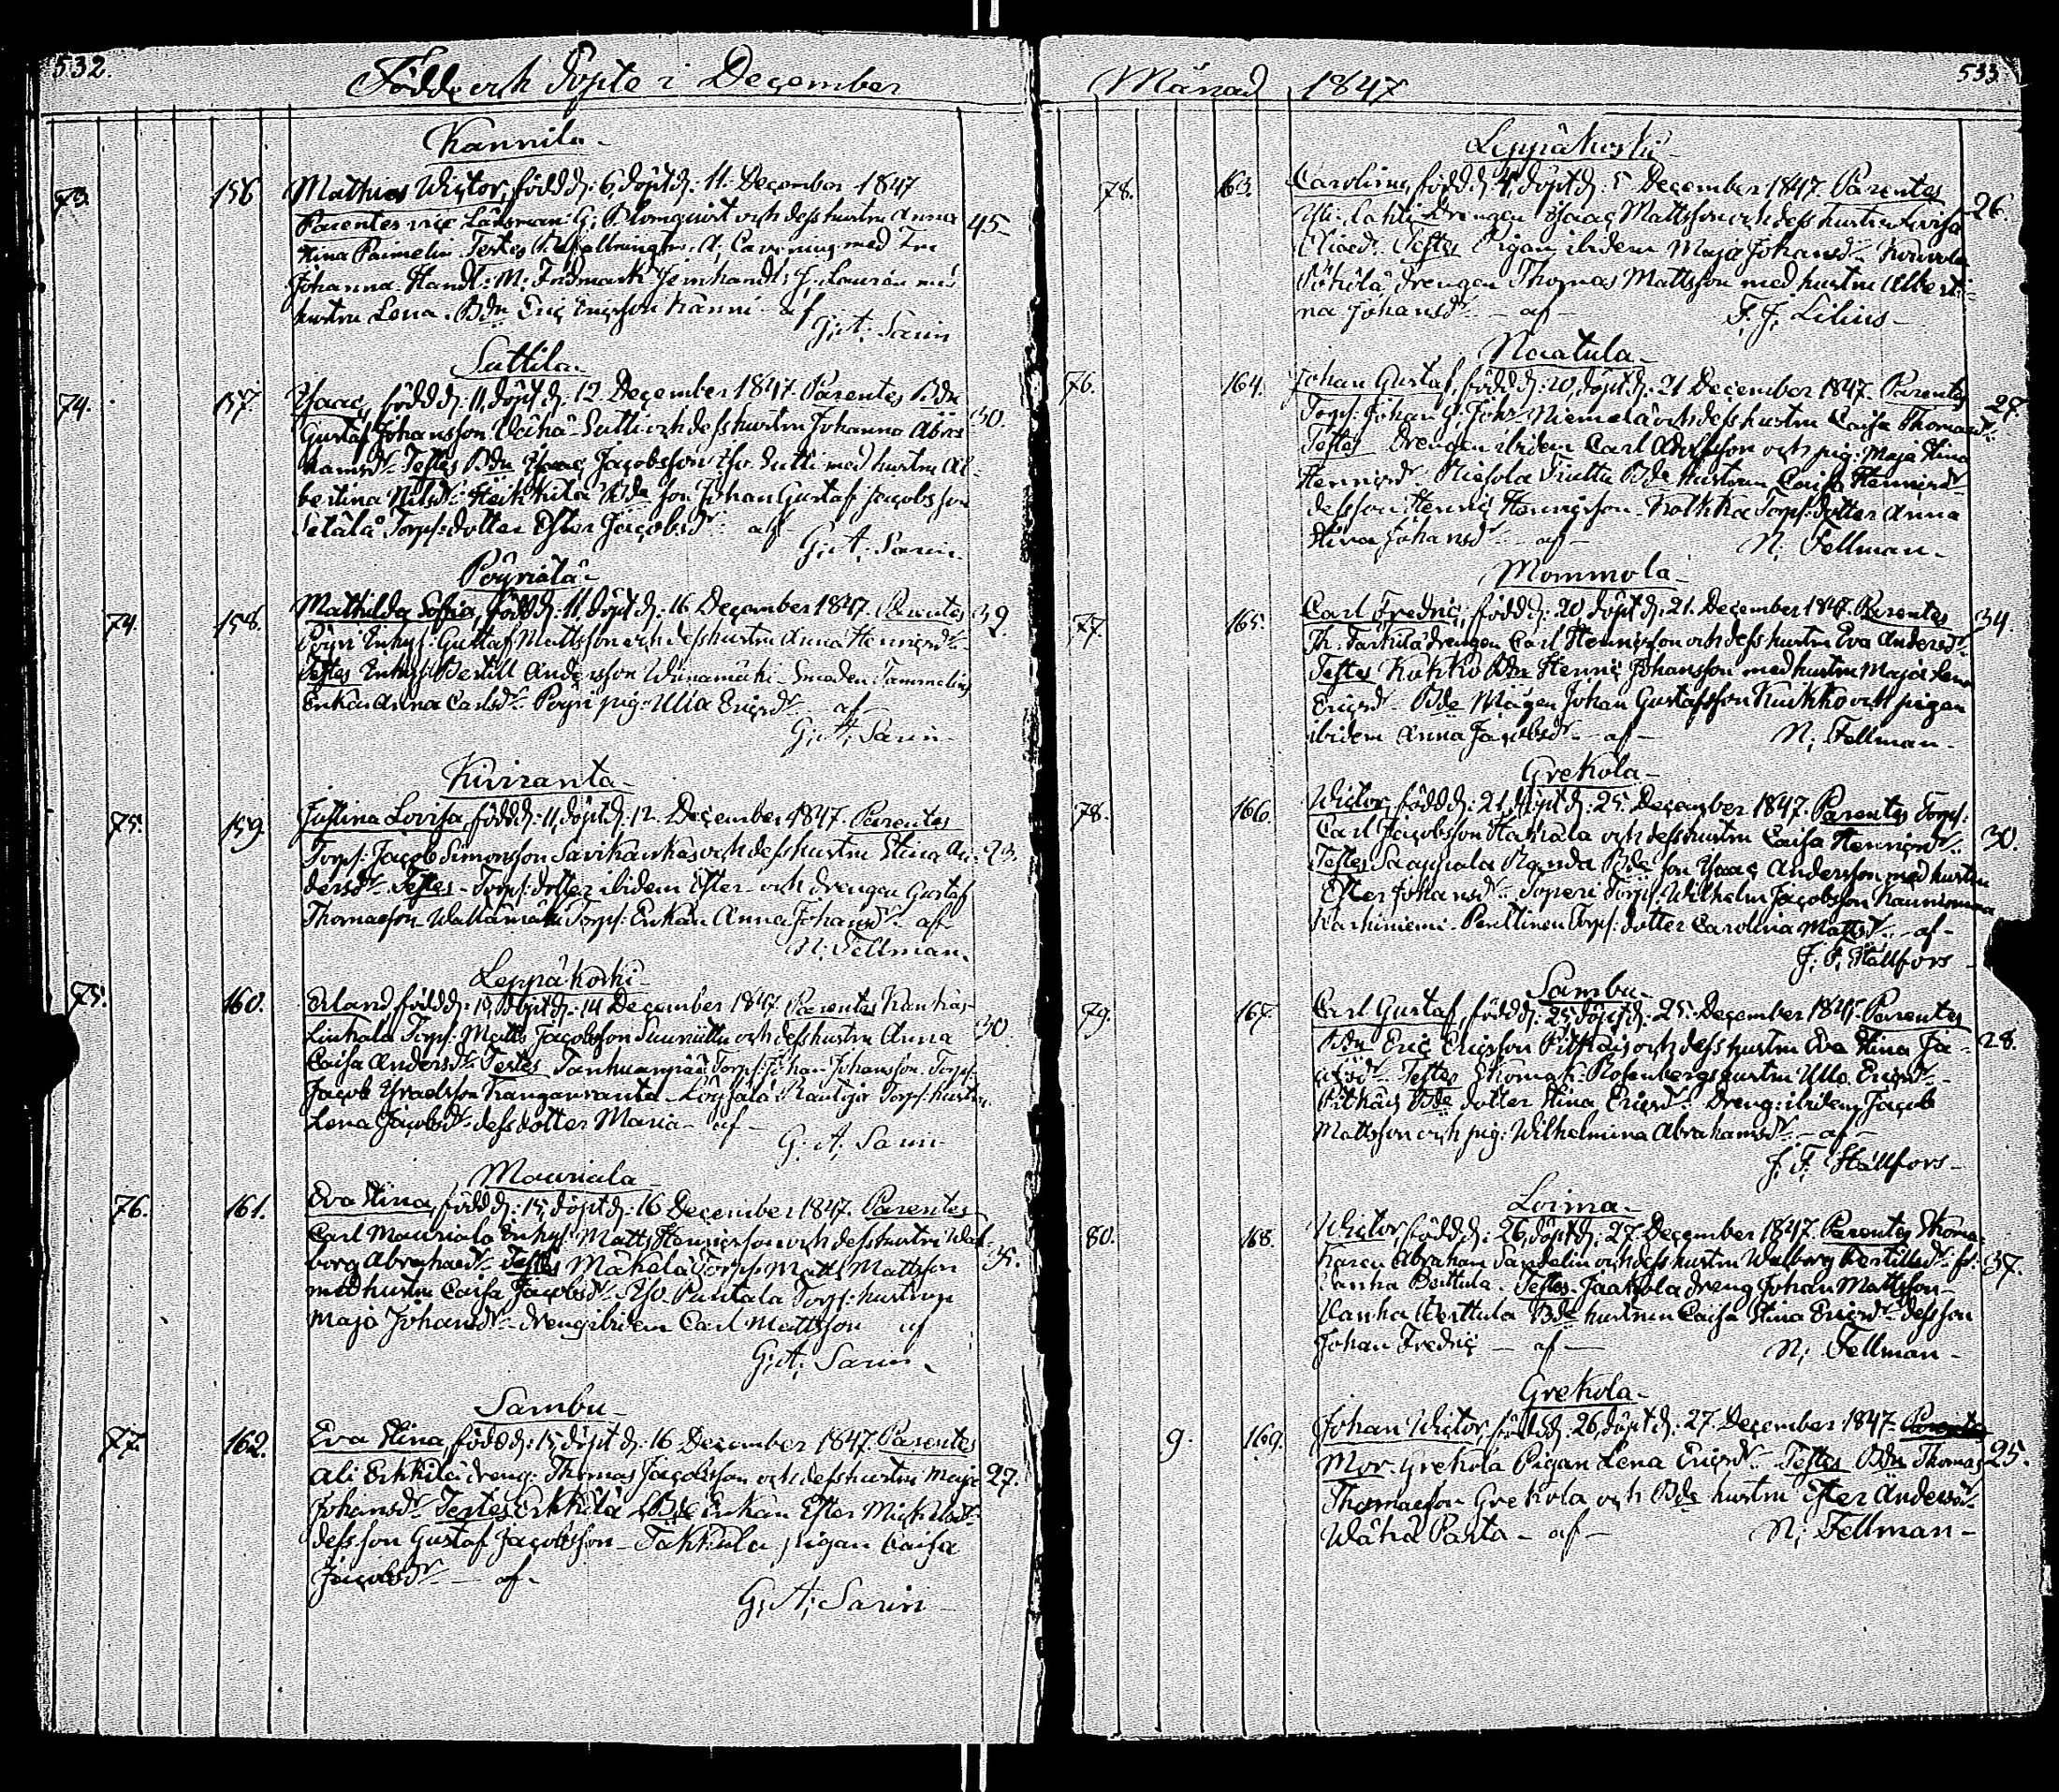 532.
Födde och Döpte i December
Kannila
73. 156 Mathias Victor, född d: 6, döpt d: 11. December 1847
Parentes vice Länsman: G: Blomquist och dess hustru Anna 45
Stina Paimelin Testes A: Cavenius med Fru
Johanna Handl: M: Lindmark J: Laurén med
hustru Lena. Bdn Eric Ericsson Kanni af
G: A: Sarin
Suttila
74. 157 Isaac, född d: 11, döpt d: 12 December 1847. Parentes Bdn 30.
Gustaf Johansson Wähä-Sutti och dess hustru Johanna Abra
hamsdr Testes Bdn Isaac Jacobsson Iso Sutti med hustru Al-
bertina Nilsdr Heikkilä Bde son Johan Gustaf Jacobsson
Setälä Torp: dotter Ester Jacobsdr af
G: A: Sarin.
Pöyriälä
74. 158. Mathilda Sofia, född d: 11, döpt d: 16 December 1847. Parentes 39.
Pöyri Enkhs: Gustaf Mattsson och dess hustru Anna Henricsdr
Testes Enkhs: Bertill Andersson Smeden Tammelins
Enka Anna Carlsdr Pöyri pig: Ulla Ericsdr af
G: A: Sarin
Kiviranta
75. 159. Justina Lovisa, född d: 11, döpt d: 12. December 1847. Parentes
Torp: Jacob Simonsson Savikankas och dess hustru Stina An- 23.
dersdr Testes Torp: dotter ibidem Ester och drengen Gustaf
Thomasson Torp: Enkan Anna Johansdr af
N: Fellman.
Leppäkoski
75. 160. Erland, född d: 13, döpt d: 14 December 1847 Parentes
Torp: Matts Jacobsson och dess hustru Anna 30.
Caisa Andersdr Testes Torp: Johan Johansson Torp:
Jacob Israelsson Kanganranta Torp: hustru
Lena Jacobsdr dess dotter Maria af
G: A: Sarin
Mauriala
76. 161. Eva Stina, född d: 15, döpt d: 16 December 1847. Parentes
Carl Mauriala Enhys: Matts Henricsson och dess hustru Wal
borg Abrahamsdr Testes Mäkelä Torp: Matts Mattsson 35.
med hustru Caisa Jacobsdr Iso Puntala Torp: hustrun
Maja Johansdr dreng ibidem Carl Mattsson af
G: A: Sarin.
Sambu
77. 162. Eva Stina, född d: 15, döpt d: 16 December 1847. Parentes
Ali Erkkilä dreng: Thomas Jacobsson och dess hustru Maja 27.
Johansdr Testes Erkkilä Bde Enkan Ester Michelsdr
dess son Gustaf Jacobsson Takkula pigan Caisa
Jacobsdr af
G: A: Sarin
533
Månad 1847
Leppäkoski
78. 163. Carolina, född d: 4, döpt d: 5 December 1847. Parentes
Yli Lahti drengen Isaac Mattsson och dess hustru Lovisa 26.
Eliaed: Testes Pigan ibidem Maja Johansdr Kouvola
drengen Thomas Mattsson med hustru Alberti-
na Johansdr af
F: J: Lilius
Naatula
76. 164. Johan Gustaf, född d: 20, döpt d: 21 December 1847. Parentes
Torp: Johan G: Johs Niemelä och dess hustru Caisa Thomaed: 27.
Testes Drengen ibidem Carl Adolfsson och pig: Maja Stina
Henricsdr Bde hustrun Caisa Henricsdr
dess son Henric Henricsson Kokkka Torp: dotter Anna
Stina Johansdr af
N: Fellman
Mommola
77. 165. Carl Fredric, född d: 20 döpt d: 21. December 1847. Parentes 34.
drengen Carl Henricsson och dess hustru Eva Andersdr
Testes Kokko Bdn Henric Johansson med hustru Maja Lena
Ericsdr Bde Mågen Johan Gustafsson Kurkko och pigan
ibidem Anna Jacobsdr af
N: Fellman
Grekola
78. 166. Victor, född d: 21, döpt d: 25. December 1847. Parentes Torp:
Carl Jacobsson och dess hustru Caisa Henricsdr 30.
Testes Bde son Isaac Andersson med hustru
Ester Johansdr Torp: Wilhelm Jacobsson
Karhiniemi Penttinen Torp: dotter Carolina Mattsdr af
J: F: Hällfors
Sambu
79. 167. Carl Gustaf, född d: 25 döpt d: 25. December 1847. Parentes
Bdn Eric Ericsson Pitkäis och dess hustru Eva Stina Ja- 28.
cobsdr Testes Rosenbergs hustru Ulla Ericsdr
Pitkäis Bde dotter Stina Ericsdr Dreng: ibidem Jacob
Mattsson och pig: Wilhelmina Abrahamsdr af
J: F: Hällfors
Loima
80. 168. Victor, född d: 26, döpt d: 27. December 1847 Parentes Skoma-
karen Abraham Sandelin och dess hustru Walborg Bertillsdr 37.
Wanha Perttula. Testes Jaakkola dreng Johan Mattsson
Wanha Perttula Bde hustrun Caisa Stina Ericsdr dess son
Johan Fredric af
N: Fellman
Grekola
9. 169. Johan Victor, född d: 26, döpt d: 27. December 1847. Parentes
Mor. Grekola Pigan Lena Ericsdr Testes Bdn Thomas 25.
Thomaesson Grekola och Bde hustru Ester Andersdr
Wähä Parta af
N: Fellman